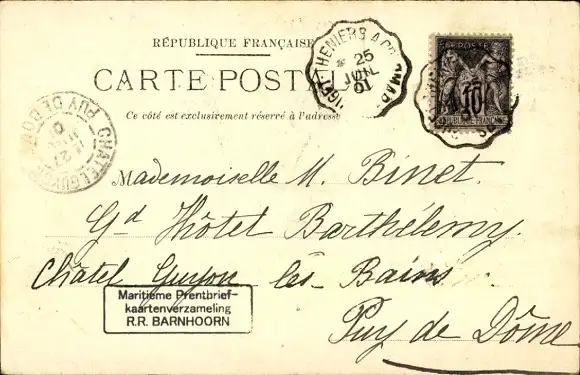 RÉPUBLIQUE FRANÇAISE
CARTE POSTALE
Ce côté est exclusivement réservé à l'adresse
25
JUIL
01
POSTE
10
RÉPUBLIQUE FRANÇAISE
CHATELGUYON
PUY DE DOME
Mademoiselle M. Binet.
Gd Hôtel Barthélemy.
Châtel Guyon les Bains
Puy de Dôme
Maritieme Prentbrief-
kaartenverzameling
R.R. BARNHOORN